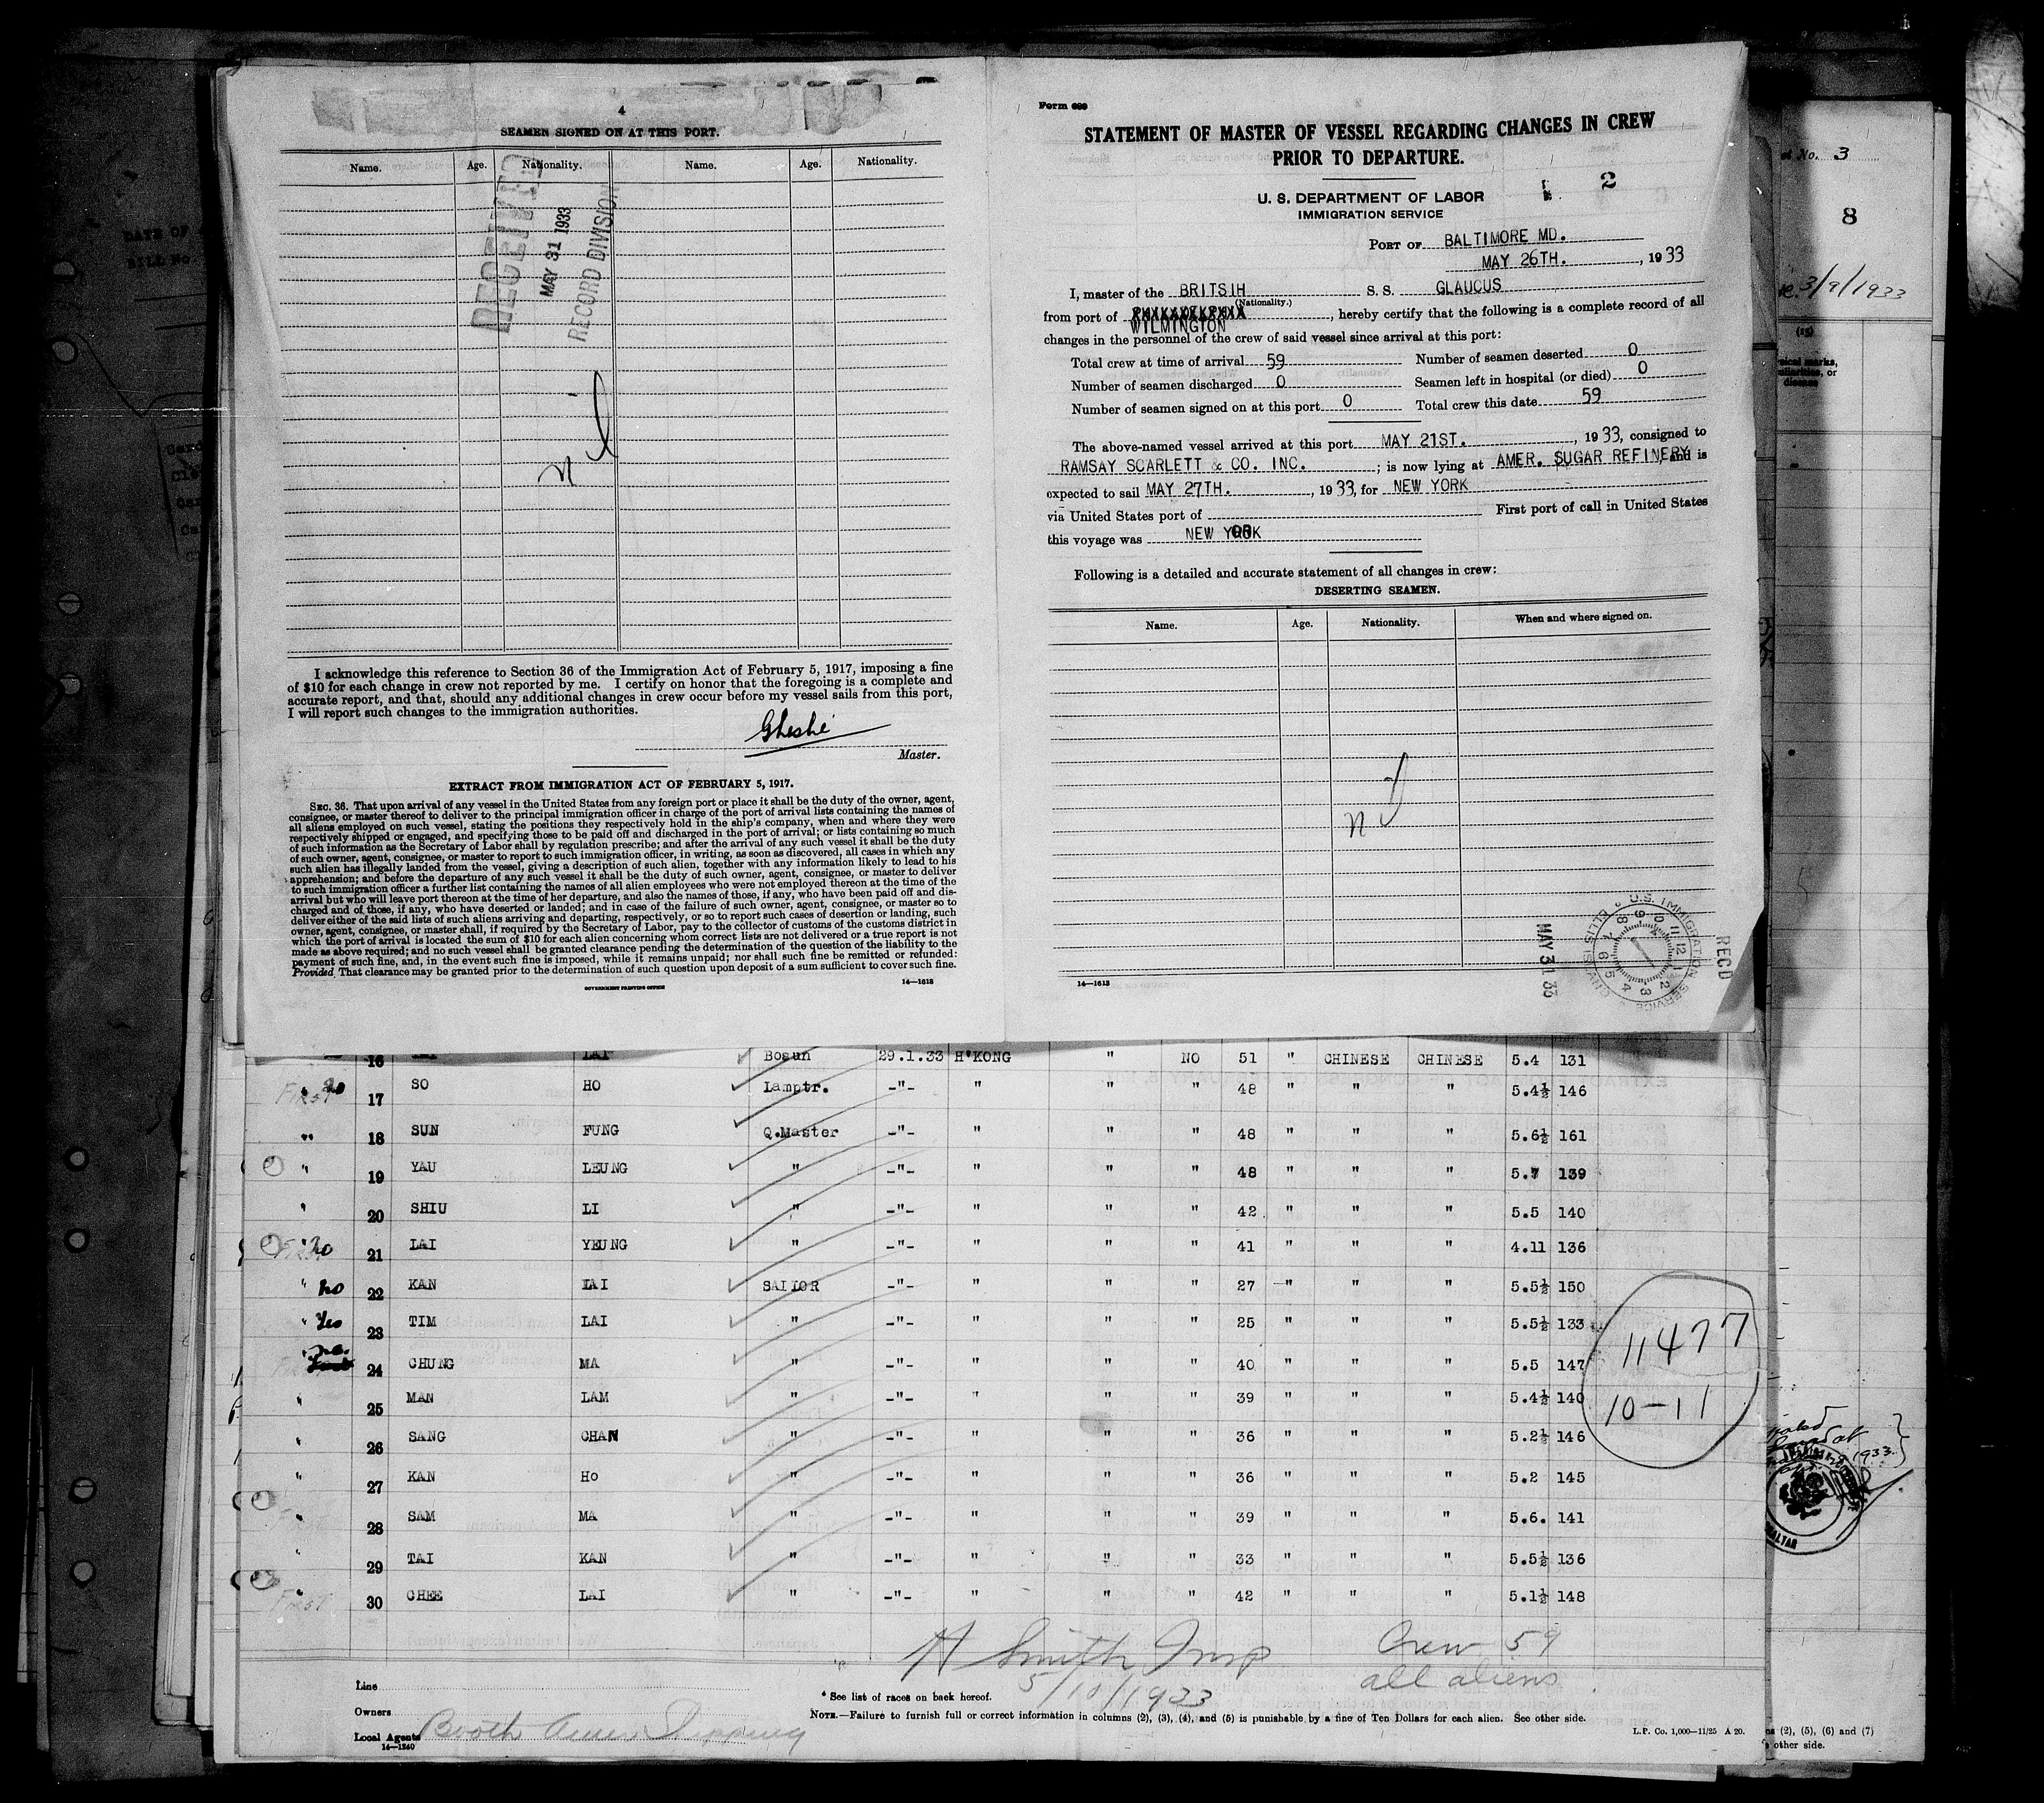 4
SEAMEN SIGNED ON AT THIS PORT.
Name. Age. Nationality. Name. Age. Nationality.
RECEIVED
MAY 31 1933
RECORD DIVISION
nil
I acknowledge this reference to Section 36 of the Immigration Act of February 5, 1917, imposing a fine
of $10 for each change in crew not reported by me. I certify on honor that the foregoing is a complete and
accurate report, and that, should any additional changes in crew occur before my vessel sails from this port,
I will report such changes to the immigration authorities.
Master.
EXTRACT FROM IMMIGRATION ACT OF FEBRUARY 5, 1917.
SEC. 36. That upon arrival of any vessel in the United States from any foreign port or place it shall be the duty of the owner, agent,
consignee, or master thereof to deliver to the principal immigration officer in charge of the port of arrival lists containing the names of
all aliens employed on such vessel, stating the positions they respectively hold in the ship's company, when and where they were
respectively shipped or engaged, and specifying those to be paid off and discharged in the port of arrival; or lists containing so much
of such information as the Secretary of Labor shall by regulation prescribe; and after the arrival of any such vessel it shall be the duty
of such owner, agent, consignee, or master to report to such immigration officer, in writing, as soon as discovered, all cases in which any
such alien has illegally landed from the vessel, giving a description of such alien, together with any information likely to lead to his
apprehension; and before the departure of any such vessel it shall be the duty of such owner, agent, consignee, or master to deliver
to such immigration officer a further list containing the names of all alien employees who were not employed thereon at the time of the
arrival but who will leave port thereon at the time of her departure, and also the names of those, if any, who have been paid off and dis-
charged and of those, if any, who have deserted or landed; and in case of the failure of such owner, agent, consignee, or master so to
deliver either of the said lists of such aliens arriving and departing, respectively, or so to report such cases of desertion or landing, such
owner, agent, consignee, or master shall, if required by the Secretary of Labor, pay to the collector of customs of the customs district in
which the port of arrival is located the sum of $10 for each alien concerning whom correct lists are not delivered or a true report is not
made as above required; and no such vessel shall be granted clearance pending the determination of the question of the liability to the
payment of such fine, and, in the event such fine is imposed, while it remains unpaid; nor shall such fine be remitted or refunded:
Provided, That clearance may be granted prior to the determination of such question upon deposit of a sum sufficient to cover such fine.
GOVERNMENT PRINTING OFFICE 14—1613
Form 689
STATEMENT OF MASTER OF VESSEL REGARDING CHANGES IN CREW
PRIOR TO DEPARTURE.
U. S. DEPARTMENT OF LABOR
IMMIGRATION SERVICE
2
PORT OF BALTIMORE MD.
MAY 26TH., 1933
I, master of the BRITSIH S. S. GLAUCUS
(Nationality.)
from port of WILMINGTON, hereby certify that the following is a complete record of all
changes in the personnel of the crew of said vessel since arrival at this port:
Total crew at time of arrival 59 Number of seamen deserted 0
Number of seamen discharged 0 Seamen left in hospital (or died) 0
Number of seamen signed on at this port 0 Total crew this date 59
The above-named vessel arrived at this port MAY 21ST., 1933, consigned to
RAMSAY SCARLETT & CO. INC.; is now lying at AMER. SUGAR REFINERY, and is
expected to sail MAY 27TH., 1933, for NEW YORK
via United States port of First port of call in United States
this voyage was NEW YORK
Following is a detailed and accurate statement of all changes in crew:
DESERTING SEAMEN.
Name. Age. Nationality. When and where signed on.
nil
U.S. IMMIGRATION SERVICE ELLIS ISLAND
REC'D
MAY 31 33
14—1613
16 LAI Bosun 29.1.33 H'KONG " NO 51 " CHINESE CHINESE 5.4 131
First no 17 SO HO Lamptr. -"- " " " 48 " " " 5.4½ 146
" 18 SUN FUNG Q.Master -"- " " " 48 " " " 5.6½ 161
" 19 YAU LEUNG " -"- " " " 48 " " " 5.7 139
" 20 SHIU LI " -"- " " " 42 " " " 5.5 140
First no 21 LAI YEUNG " -"- " " " 41 " " " 4.11 136
" no 22 KAN LAI SAILOR -"- " " " 27 " " " 5.5½ 150
" Yes 23 TIM LAI " -"- " " " 25 " " " 5.5½ 133
no. 24 CHUNG MA " -"- " " " 40 " " " 5.5 147
" 25 MAN LAM " -"- " " " 39 " " " 5.4½ 140
" 26 SANG CHAN " -"- " " " 36 " " " 5.2½ 146
" 27 KAN Ho " -"- " " " 36 " " " 5.2 145
" 28 SAM MA " -"- " " " 39 " " " 5.6. 141
" 29 TAI KAN " -"- " " " 33 " " " 5.5½ 136
First 30 CHEE LAI " -"- " " " 42 " " " 5.1½ 148
11477
10-11
H Smith Insp
5/10/1933
Crew 59
all aliens
Line
Owners
Local Agents Booth Amer Shipping
14—1240
* See list of races on back hereof.
NOTE.—Failure to furnish full or correct information in columns (2), (3), (4), and (5) is punishable by a fine of Ten Dollars for each alien. See other side.
L.P. Co. 1,000—11/25 A 20.
No. 3
8
3/9/1933
(15)
marks,
or
disease
1933
(2), (5), (6) and (7)
other side.
DATE OF
BILL No